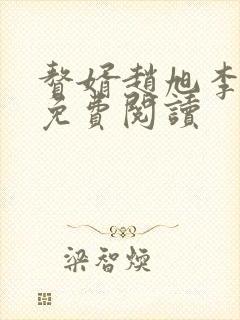 贅婿趙旭李
免費閱讀
梁智煥